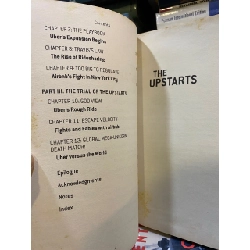 CHAPTER 7: THE PLAYBOOK
Uber's Expansion Begins
CHAPTER 8: TRAVIS'S LAW
The Rise of Ridesharing
Airbnb's Fight in New York City
PART III: THE TRIAL OF THE UPSTARTS
CHAPTER 10: GOD VIEW
Uber's Rough Ride
CHAPTER 11: ESCAPE VELOCITY
Fights and
CHAPTER 12: GLOBAL MEGA-UNICORN
DEATH MATCH!
Uber Versus the World
Epilogue
Acknowledgments
Notes
Index
THE
UPSTARTS